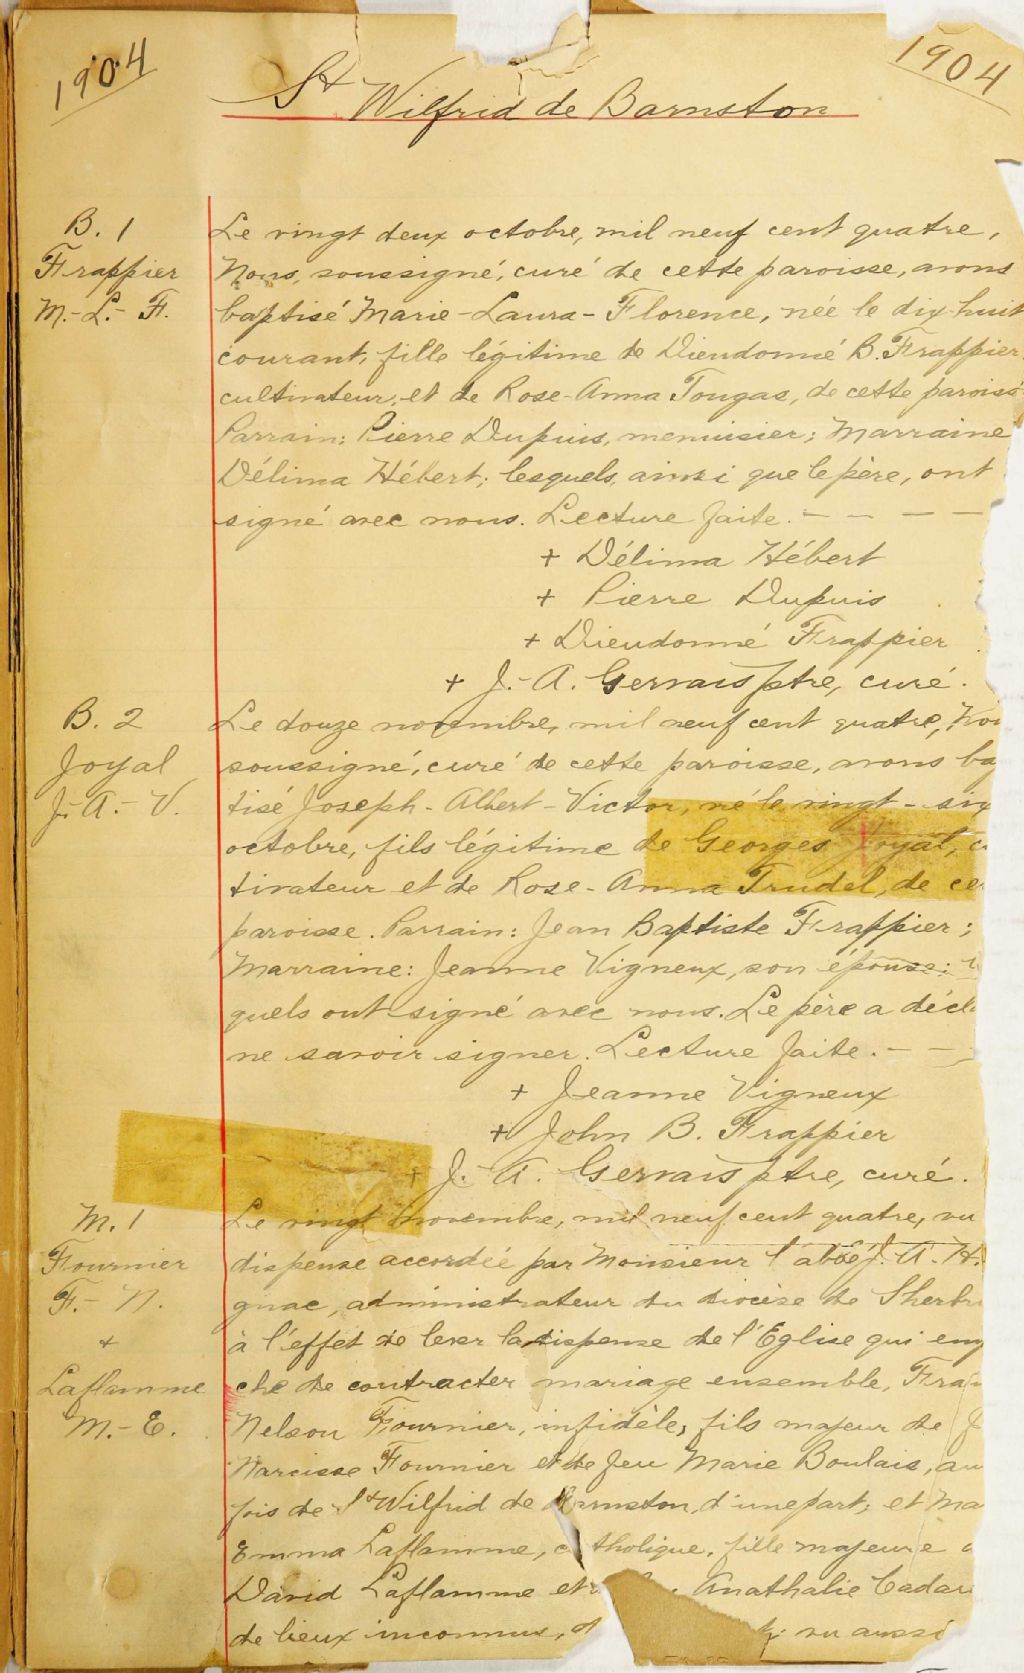 1904
1904
St Wilfrid de Barnston
B. 1
Frappier
M.-L.- F.
Le vingt deux octobre, mil neuf cent quatre,
Nous, soussigné, curé de cette paroisse, avons
baptisé Marie-Laura-Florence, née le dix-huit
courant, fille légitime de Dieudonné B. Frappier,
cultivateur, et de Rose-Anna Tougas, de cette paroiss
Parrain: Pierre Dupuis, menuisier; Marraine
Délima Hébert; lesquels, ainsi que le père, ont
signé avec nous. Lecture faite. - - - -
+ Délima Hébert
+ Pierre Dupuis
+ Dieudonné Frappier
+ J.-A. Gervais ptre, curé.
B. 2
Joyal
J.- A.- V.
Le douze novembre, mil neuf cent quatre, Nou
soussigné, curé de cette paroisse, avons bap
tisé Joseph-Albert-Victor, né le vingt-six
octobre, fils légitime de Georges Joyal, c
tivateur et de Rose-Anna Trudel, de ce
paroisse. Parrain: Jean Baptiste Frappier;
Marraine: Jeanne Vigneux, son épouse:
quels ont signé avec nous. Le père a décl
ne savoir signer. Lecture faite. - -
+ Jeanne Vigneux
+ John B. Frappier
+ J.-A. Gervais ptre, curé.
M. 1
Fournier
F.- N.
+
Laflamme
M.- E.
Le vingt novembre, mil neuf cent quatre, vu
dispense accordée par Monsieur l'abbé J. A. H.
gnac, administrateur du diocèse de Sherbr
à l'effet de lever la dispense de l'Eglise qui emp
che de contracter mariage ensemble, Fra
Nelson Fournier, infidèle, fils majeur de
Narcisse Fournier et de feu Marie Boulais, au
fois de St Wilfrid de Barnston, d'une part; et Ma
Emma Laflamme, catholique, fille majeure
David Laflamme et Anathalie Cadar
de lieux inconnus, d vu aussi